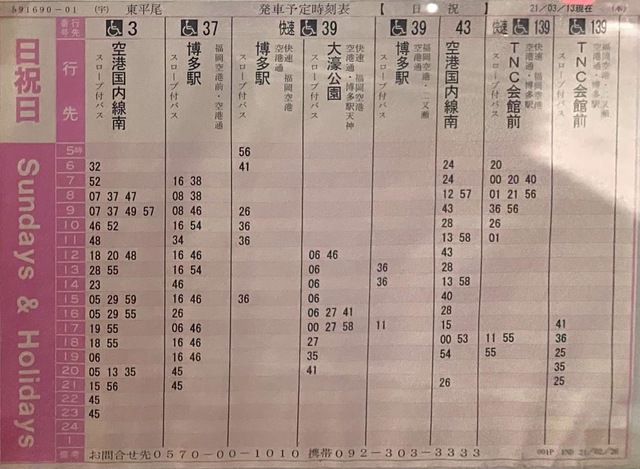 591690-01 (宇) 東平尾 発車予定時刻表 【 日 祝 】 21/03/13現在 (木)
日祝日
Sundays & Holidays
行先
3 空港国内線南 スロープ付バス
37 博多駅 福岡空港前・空港通 スロープ付バス
快速 39 博多駅 快速 福岡空港 空港通 スロープ付バス
39 大濠公園 快速・福岡空港 空港通・博多駅天神 スロープ付バス
39 博多駅 福岡空港・二又瀬 スロープ付バス
43 空港国内線南
快速 139 TNC会館前 快速・福岡空港 空港通・博多駅 スロープ付バス
139 TNC会館前 福岡空港 空港通・博多駅 スロープ付バス
5時 56
6 32 41 24 20
7 52 16 38 24 00 20 40
8 07 37 47 08 38 12 57 01 21 56
9 07 37 49 57 08 46 26 43 36 56
10 46 52 16 54 36 28 26
11 48 34 36 13 58 01
12 18 20 48 16 46 06 46 43
13 28 55 16 54 06 36 28
14 23 46 06 36 13 58
15 05 29 59 16 46 36 06 40
16 05 29 55 26 06 27 41 28
17 19 55 06 46 00 27 58 11 15 41
18 18 55 16 46 27 00 53 11 55 36
19 06 16 46 35 54 55 25
20 05 13 35 45 41 35
21 15 56 45 26 25
22 45
23 45
24
1
備考 お問合せ先0570-00-1010 携帯092-303-3333 001P IND 21/02/26